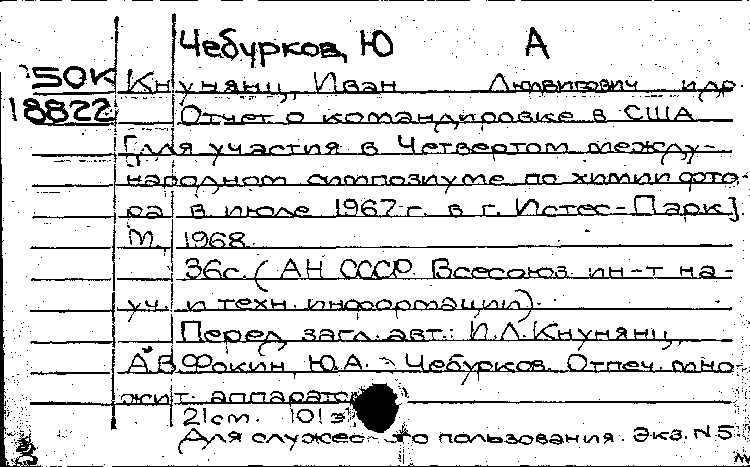 Чебурков, Ю А
50К Кнунянц, Иван Людвигович и др.
18822 Отчет о командировке в США
[для участия в Четвертом между-
народном симпозиуме по химии фто-
ра в июле 1967 г. в г. Истес-Парк].
М., 1968.
36с. (АН СССР. Всесоюз. ин-т на-
уч. и техн. информации).
Перед загл. авт.: И.Л. Кнунянц,
А.В. Фокин, Ю.А. Чебурков. Отпеч. мно-
жит. аппарато
21см. 101э
Для служеб го пользования. Экз. N5